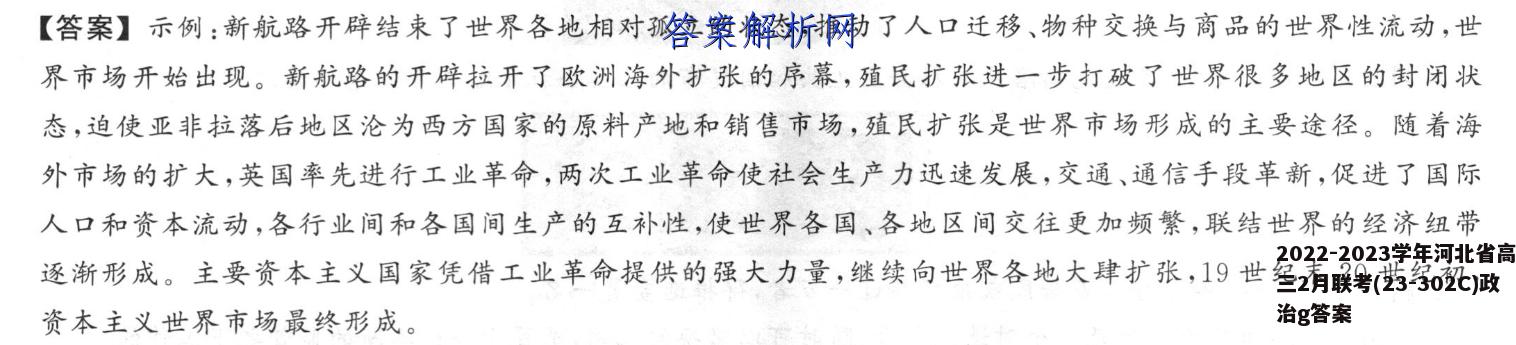 【答案】示例:新航路开辟结束了世界各地相对孤立的状态,推动了人口迁移、物种交换与商品的世界性流动,世
界市场开始出现。新航路的开辟拉开了欧洲海外扩张的序幕,殖民扩张进一步打破了世界很多地区的封闭状
态,迫使亚非拉落后地区沦为西方国家的原料产地和销售市场,殖民扩张是世界市场形成的主要途径。随着海
外市场的扩大,英国率先进行工业革命,两次工业革命使社会生产力迅速发展,交通、通信手段革新,促进了国际
人口和资本流动,各行业间和各国间生产的互补性,使世界各国、各地区间交往更加频繁,联结世界的经济纽带
逐渐形成。主要资本主义国家凭借工业革命提供的强大力量,继续向世界各地大肆扩张,19世纪末20世纪初,
资本主义世界市场最终形成。
答案解析网
2022-2023学年河北省高
三2月联考(23-302C)政
治g答案